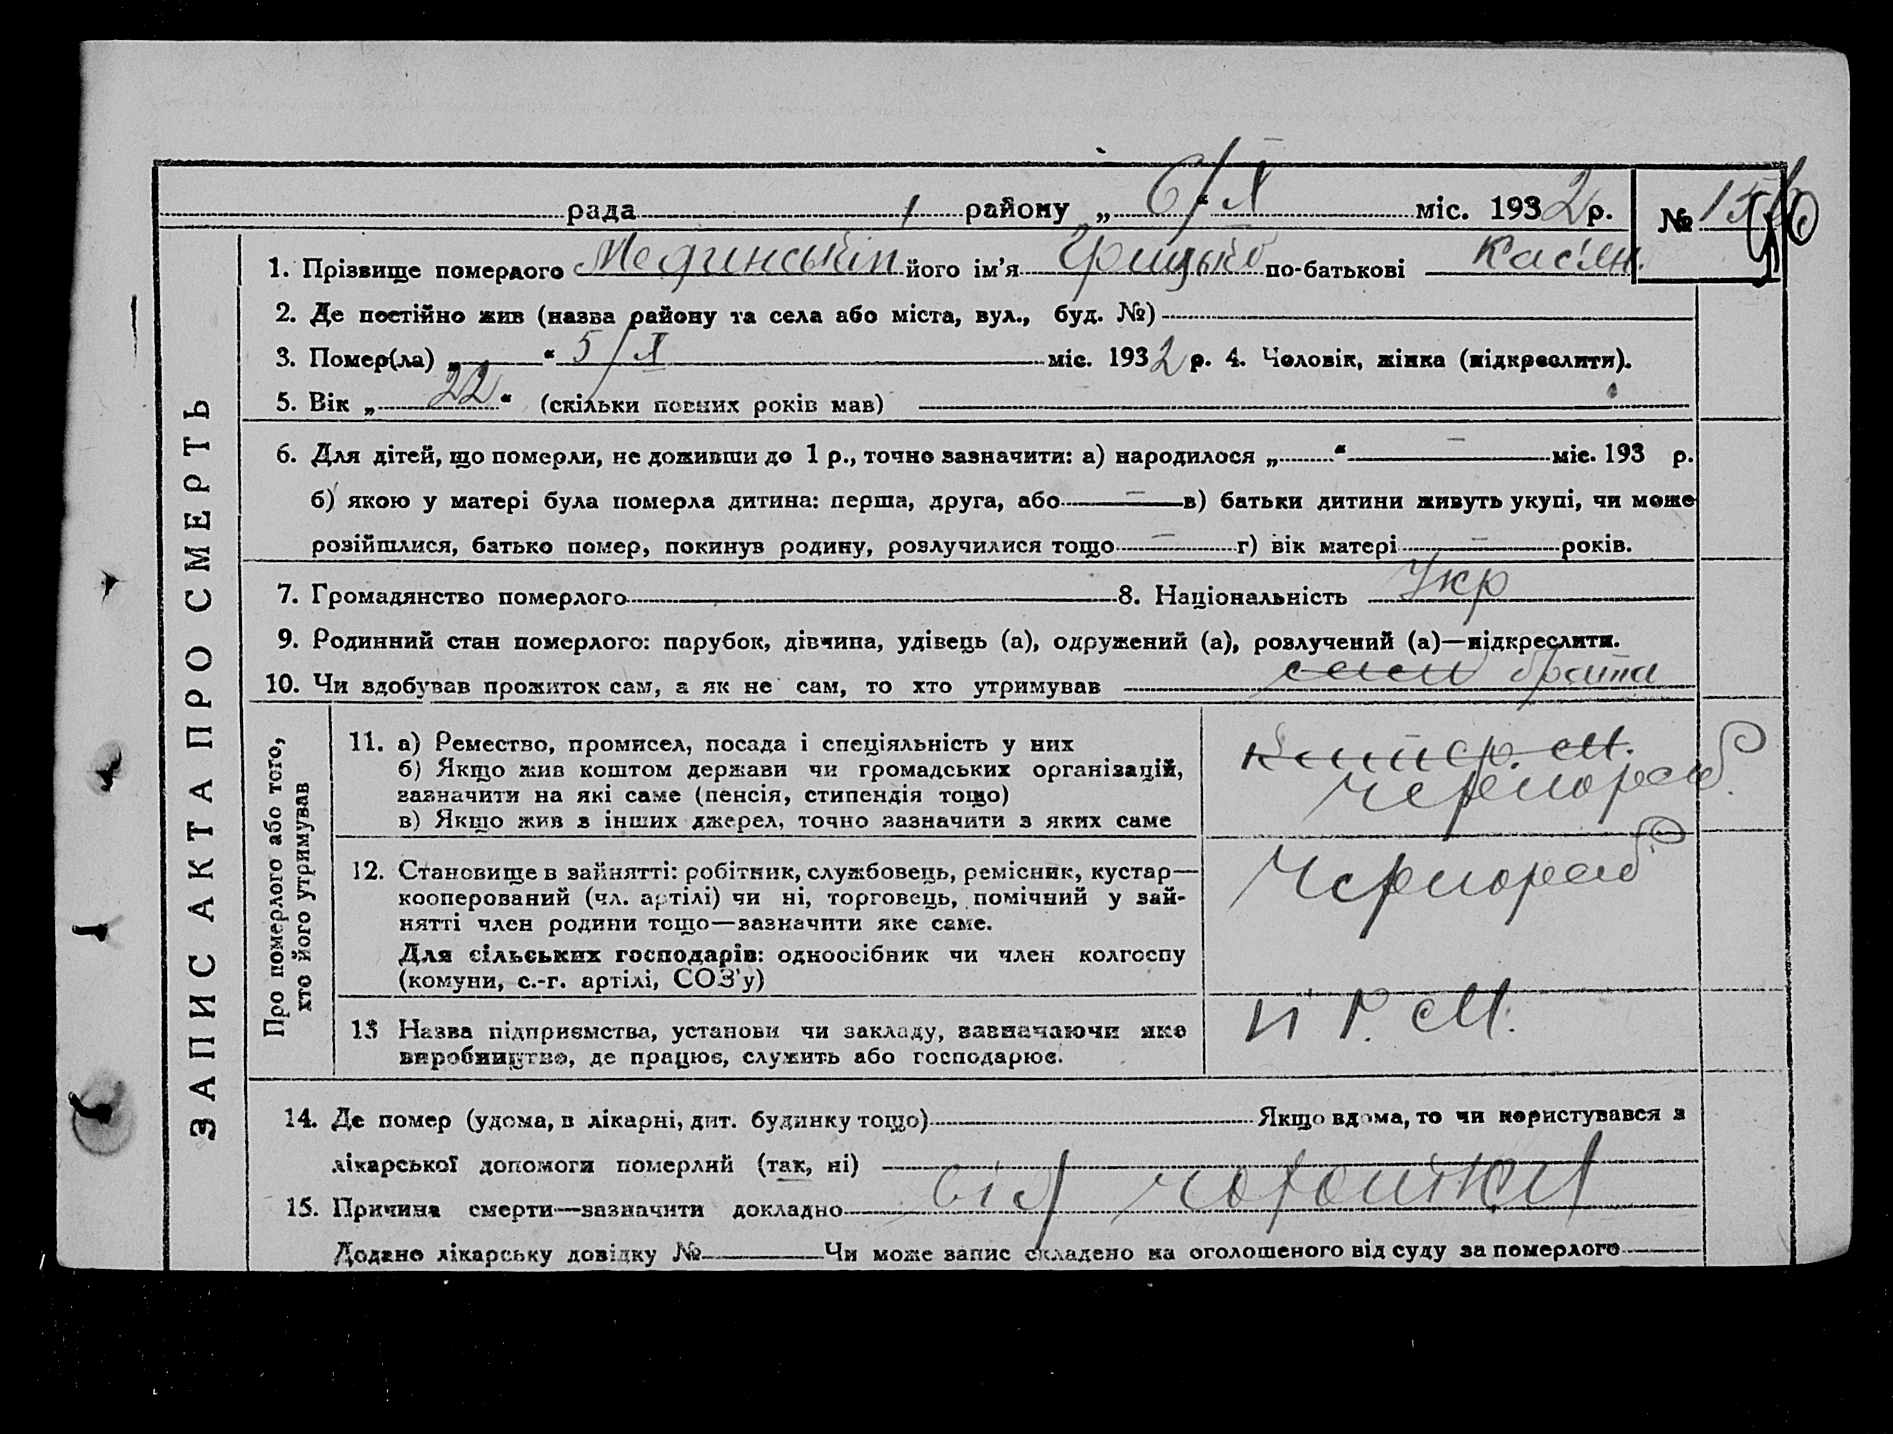 рада району „ 6/X міс. 1932 р. №
1. Прізвище померлого Мединський його ім’я Грицько по-батькові Кас'ян.
2. Де постійно жив (назва району та села або міста, вул., буд. №)
3. Помер(ла) „ “ 5/X міс. 1932 р. 4. Чоловік, жінка (підкреслити).
5. Вік „ 22 “ (скільки повних років мав)
6. Для дітей, що померли, не доживши до 1 р., точно зазначити: а) народилося „ “ — міс. 193 р.
б) якою у матері була померла дитина: перша, друга, або — в) батьки дитини живуть укупі, чи може
розійшлися, батько помер, покинув родину, розлучилися тощо — г) вік матері — років.
7. Громадянство померлого 8. Національність Укр
9. Родинний стан померлого: парубок, дівчина, удівець (а), одружений (а), розлучений (а)—підкреслити.
10. Чи вдобував прожиток сам, а як не сам, то хто утримував брата
ЗАПИС АКТА ПРО СМЕРТЬ
Про померлого або того,
хто його утримував
11. а) Ремество, промисел, посада і спеціяльність у них
б) Якщо жив коштом держави чи громадських організацій,
зазначити на які саме (пенсія, стипендія тощо)
в) Якщо жив з інших джерел, точно зазначити з яких саме
Чернороб
12. Становище в зайнятті: робітник, службовець, ремісник, кустар—
кооперований (чл. артілі) чи ні, торговець, помічний у зай-
нятті член родини тощо—зазначити яке саме.
Для сільських господарів: одноосібник чи член колгоспу
(комуни, с.-г. артілі, СОЗ’у)
Чернороб
13 Назва підприємства, установи чи закладу, зазначаючи яке
виробництво, де працює, служить або господарює.
14. Де помер (удома, в лікарні, дит. будинку тощо) Якщо вдома, то чи користувався з
лікарської допомоги померлий (так, ні)
15. Причина смерти—зазначити докладно від
Додано лікарську довідку № Чи може запис складено на оголошеного від суду за померлого